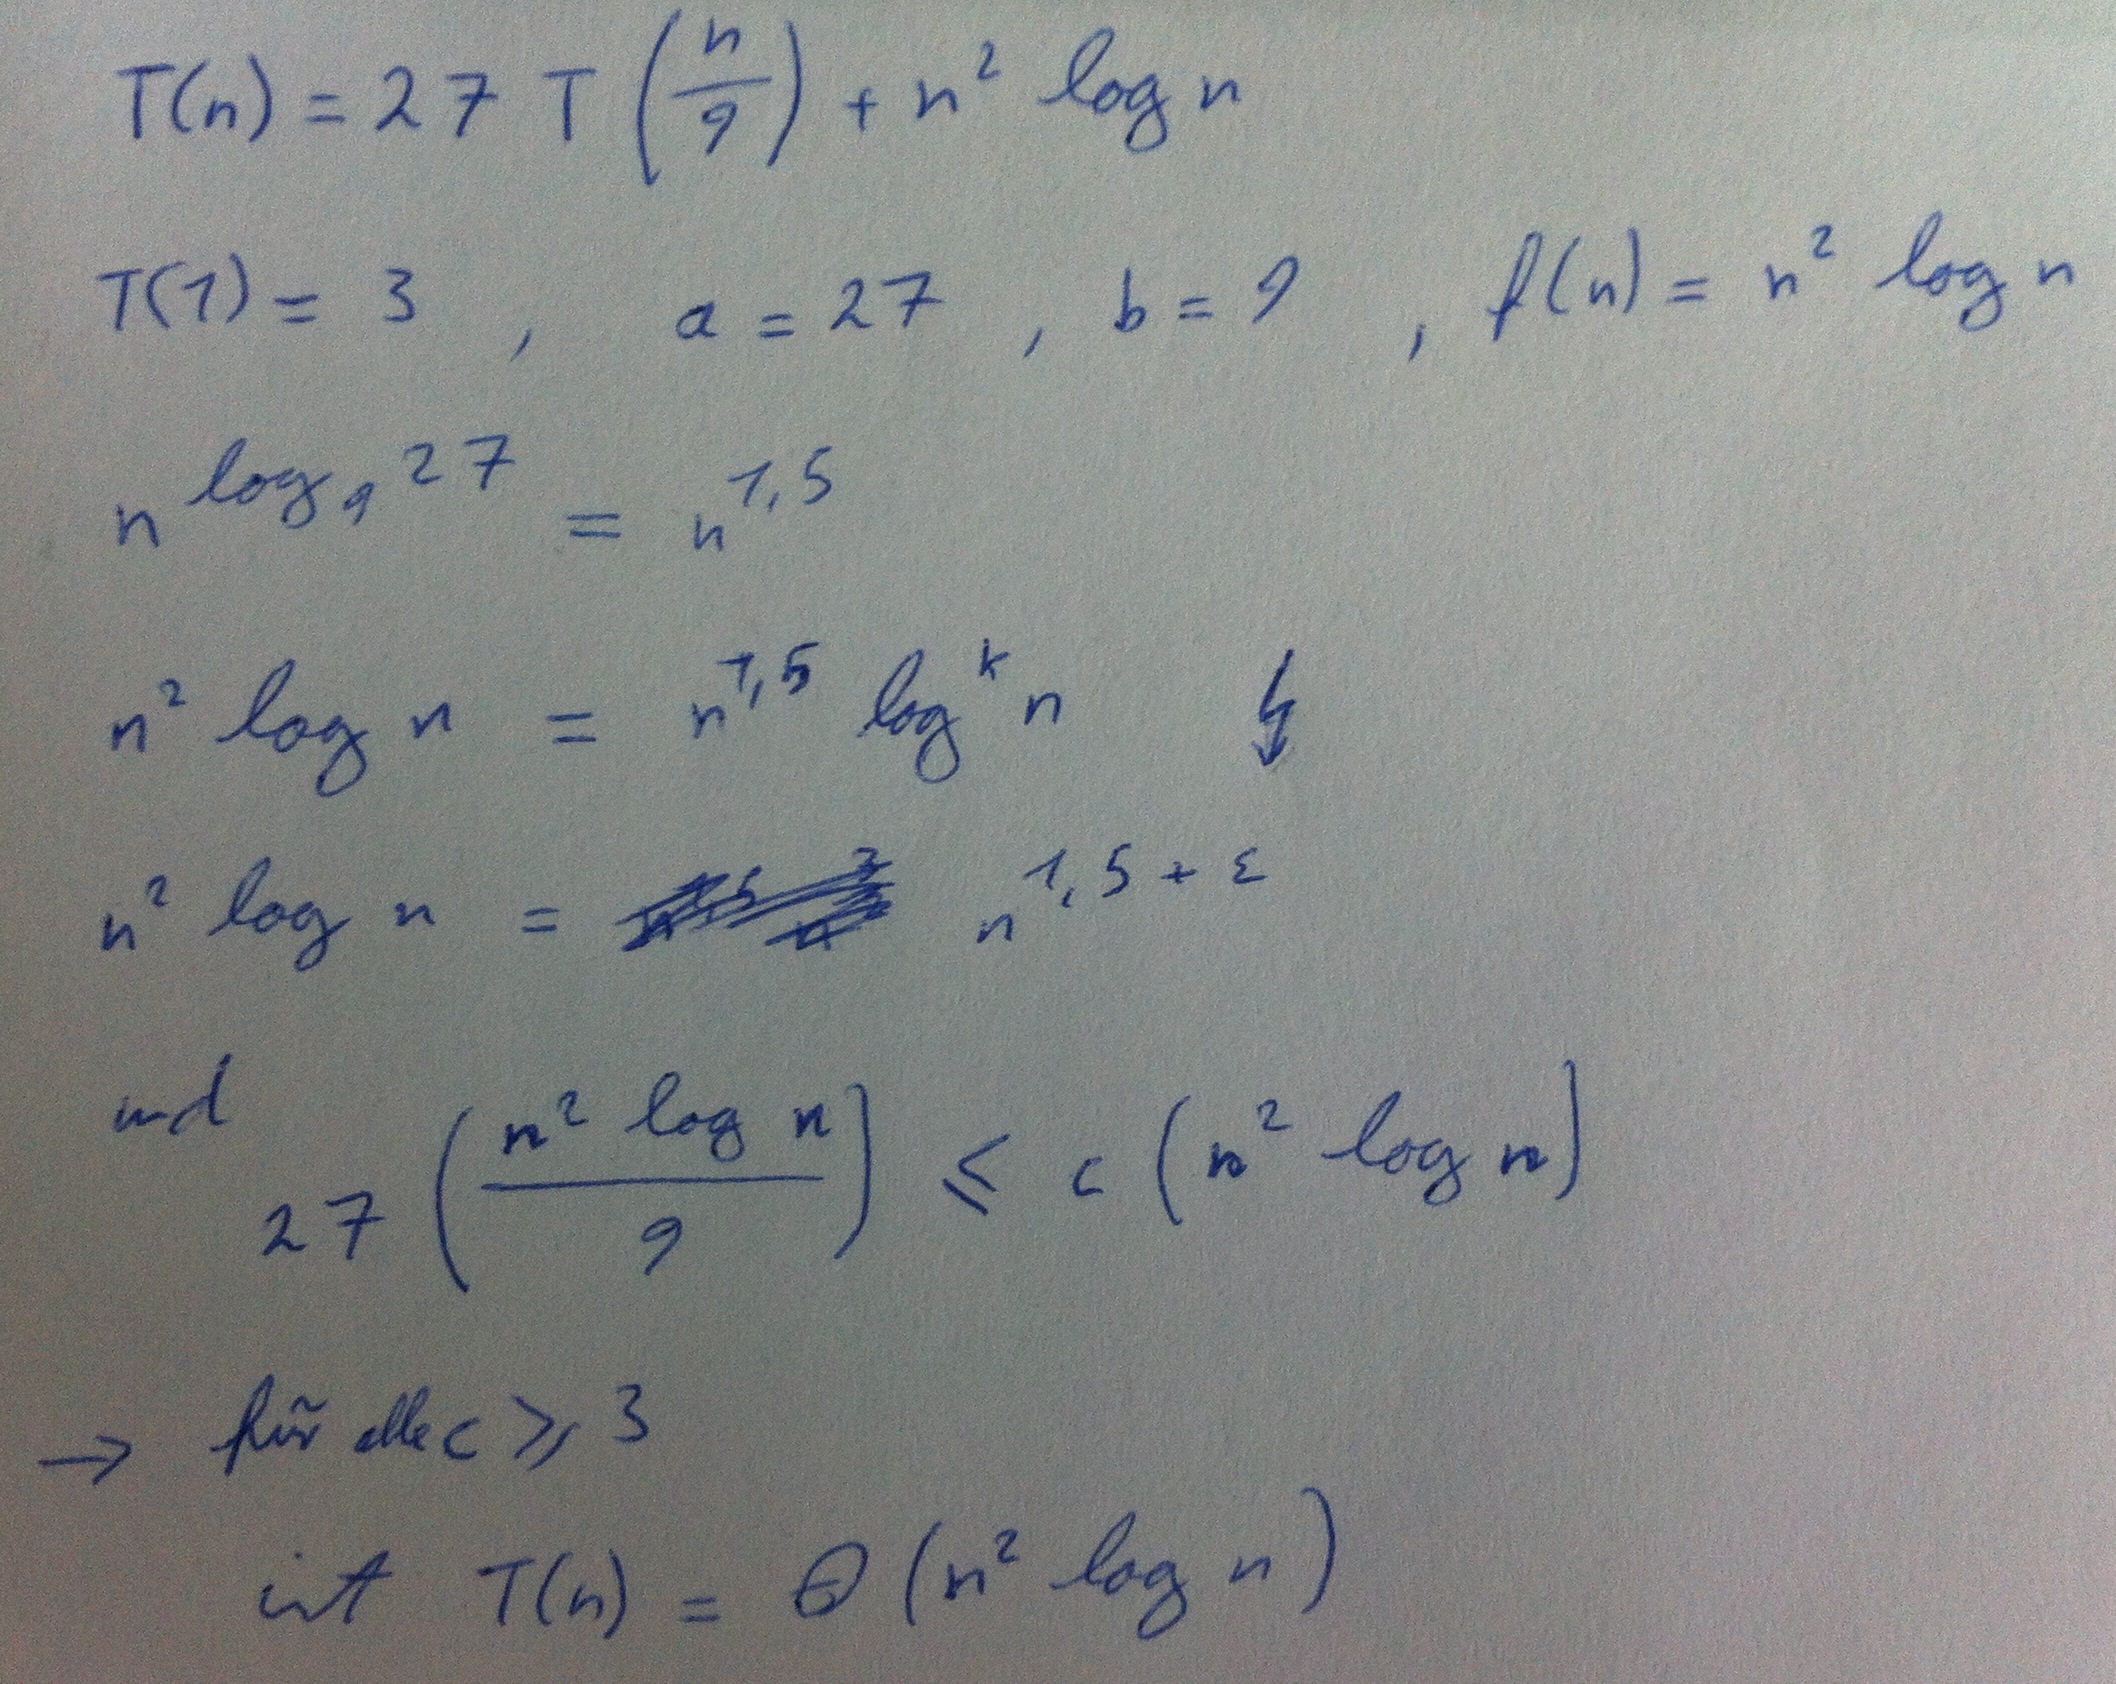 T(n) = 27 T (n/9) + n² log n
T(1) = 3 , a = 27 , b = 9 , f(n) = n² log n
n^(log₉ 27) = n^(1,5)
n² log n = n^(1,5) log^k n ↯
n² log n = n^(1,5 + ε)
und
27 ((n² log n)/9) ≤ c (n² log n)
→ für alle c ≥ 3
ist T(n) = Θ (n² log n)